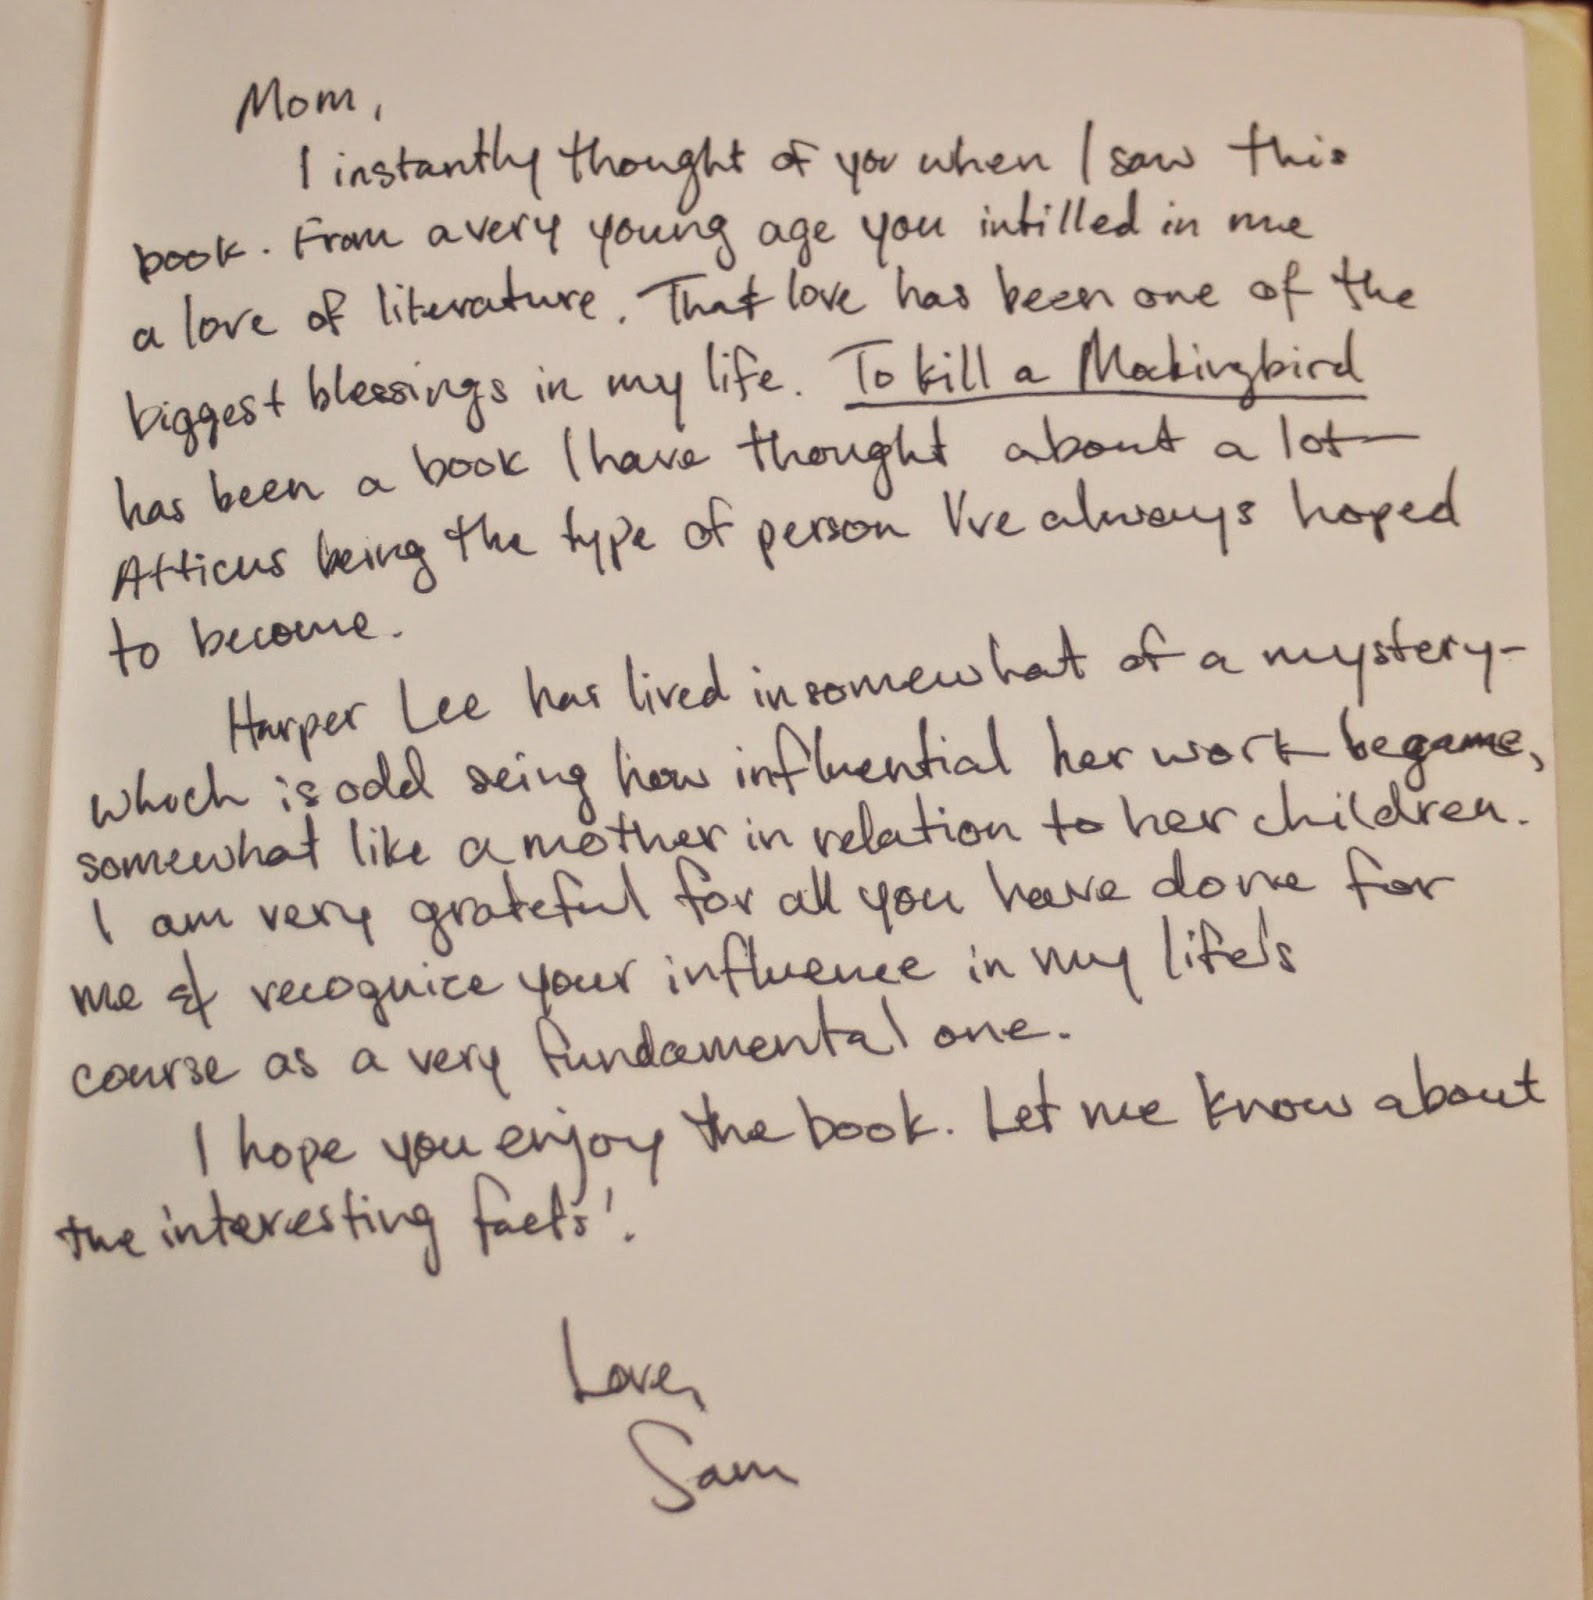 Mom,
I instantly thought of you when I saw this
book. From a very young age you intilled in me
a love of literature. That love has been one of the
biggest blessings in my life. To Kill a Mockingbird
has been a book I have thought about a lot—
Atticus being the type of person I've always hoped
to become.
Harper Lee has lived in somewhat of a mystery-
which is odd seing how influential her work became,
somewhat like a mother in relation to her children.
I am very grateful for all you have done for
me & recognize your influence in my life's
course as a very fundamental one.
I hope you enjoy the book. Let me know about
the interesting facts!
Love,
Sam